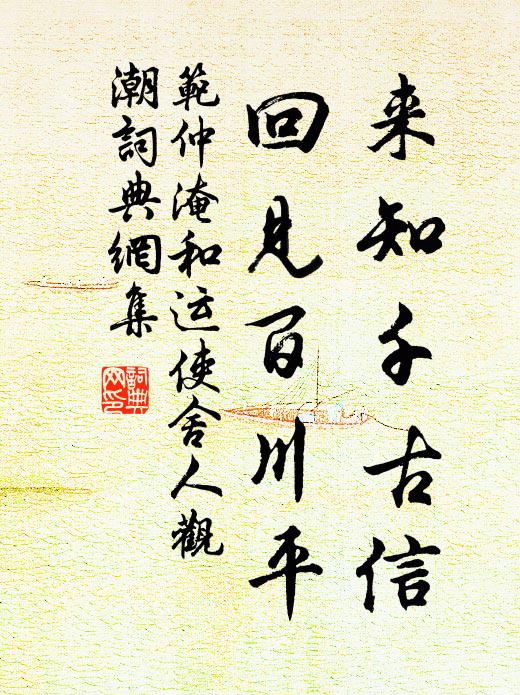 来知千古信
回见百川平
範仲淹和运使舍人觀
潮詞典網集
詞典
网印